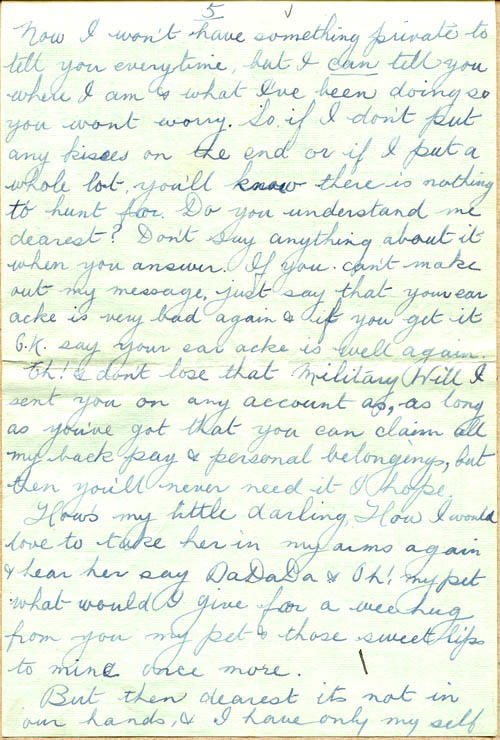 5
Now I won't have something private to
tell you everytime, but I can tell you
where I am & what I've been doing so
you wont worry. So if I don't put
any kisses on the end or if I put a
whole lot, you'll know there is nothing
to hunt for. Do you understand me
dearest? Don't say anything about it
when you answer. If you can't make
out my message, just say that your ear
acke is very bad again & if you get it
O.K. say your ear acke is well again.
Oh! & don't lose that Military Will I
sent you on any account as, as long
as you've got that you can claim all
my back pay & personal belongings, but
then you'll never need it I hope.
How's my little darling, How I would
love to take her in my arms again
& hear her say DaDaDa & Oh! my pet
what would I give for a wee hug
from you my pet & those sweet lips
to mine once more.
But then dearest its not in
our hands, & I have only my self